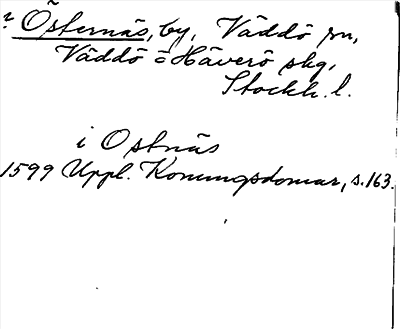 ? Östernäs, by, Väddö sn,
Väddö o Häverö skg,
Stockh. l.
i Ostnäs
1599 Uppl. Konungsdomar, s. 163.